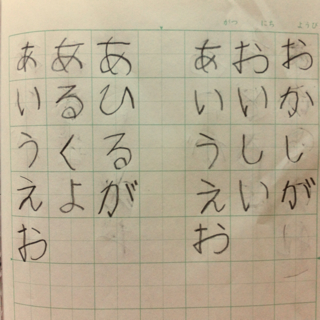 がつ にち ようび
おかしが
おいしい
あいうえお
あひるが
あるくよ
あいうえお